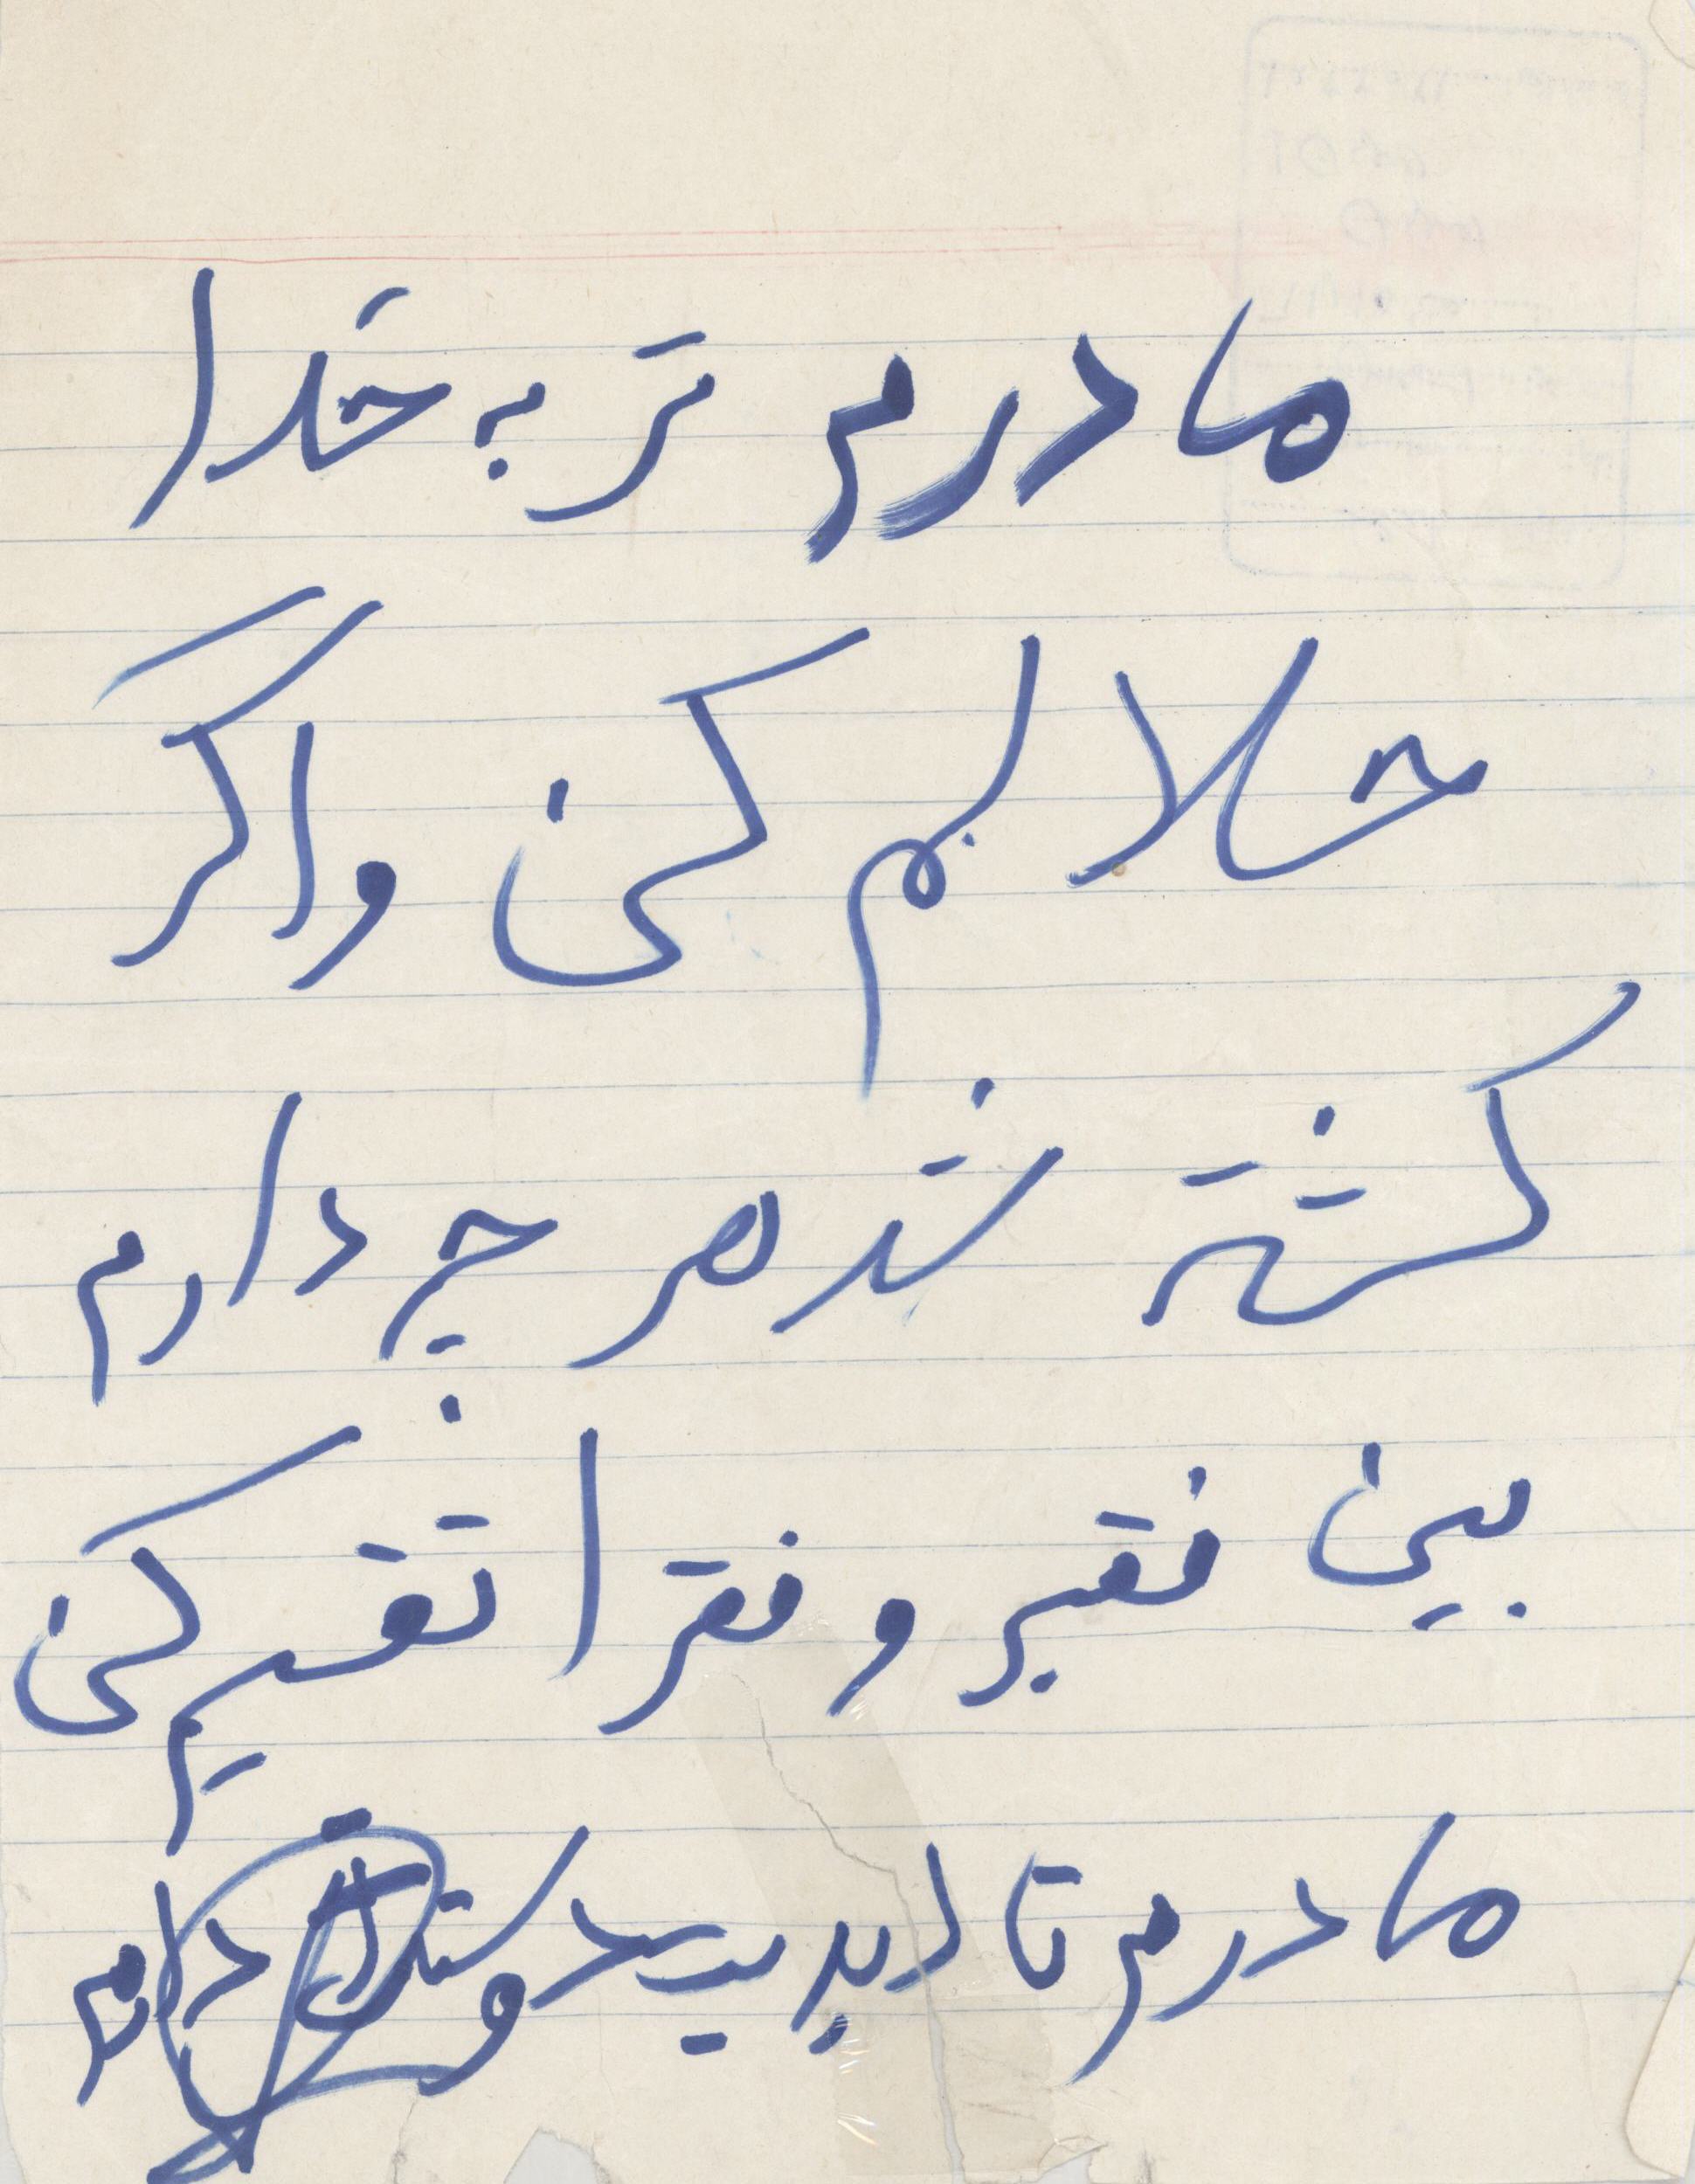 مادرم تر به خدا
حلالم کن و اگر
کشته شد هر چه دارم
بین فقیر و فقرا تقسیم کن
مادرم تا ابد دوستت دارم